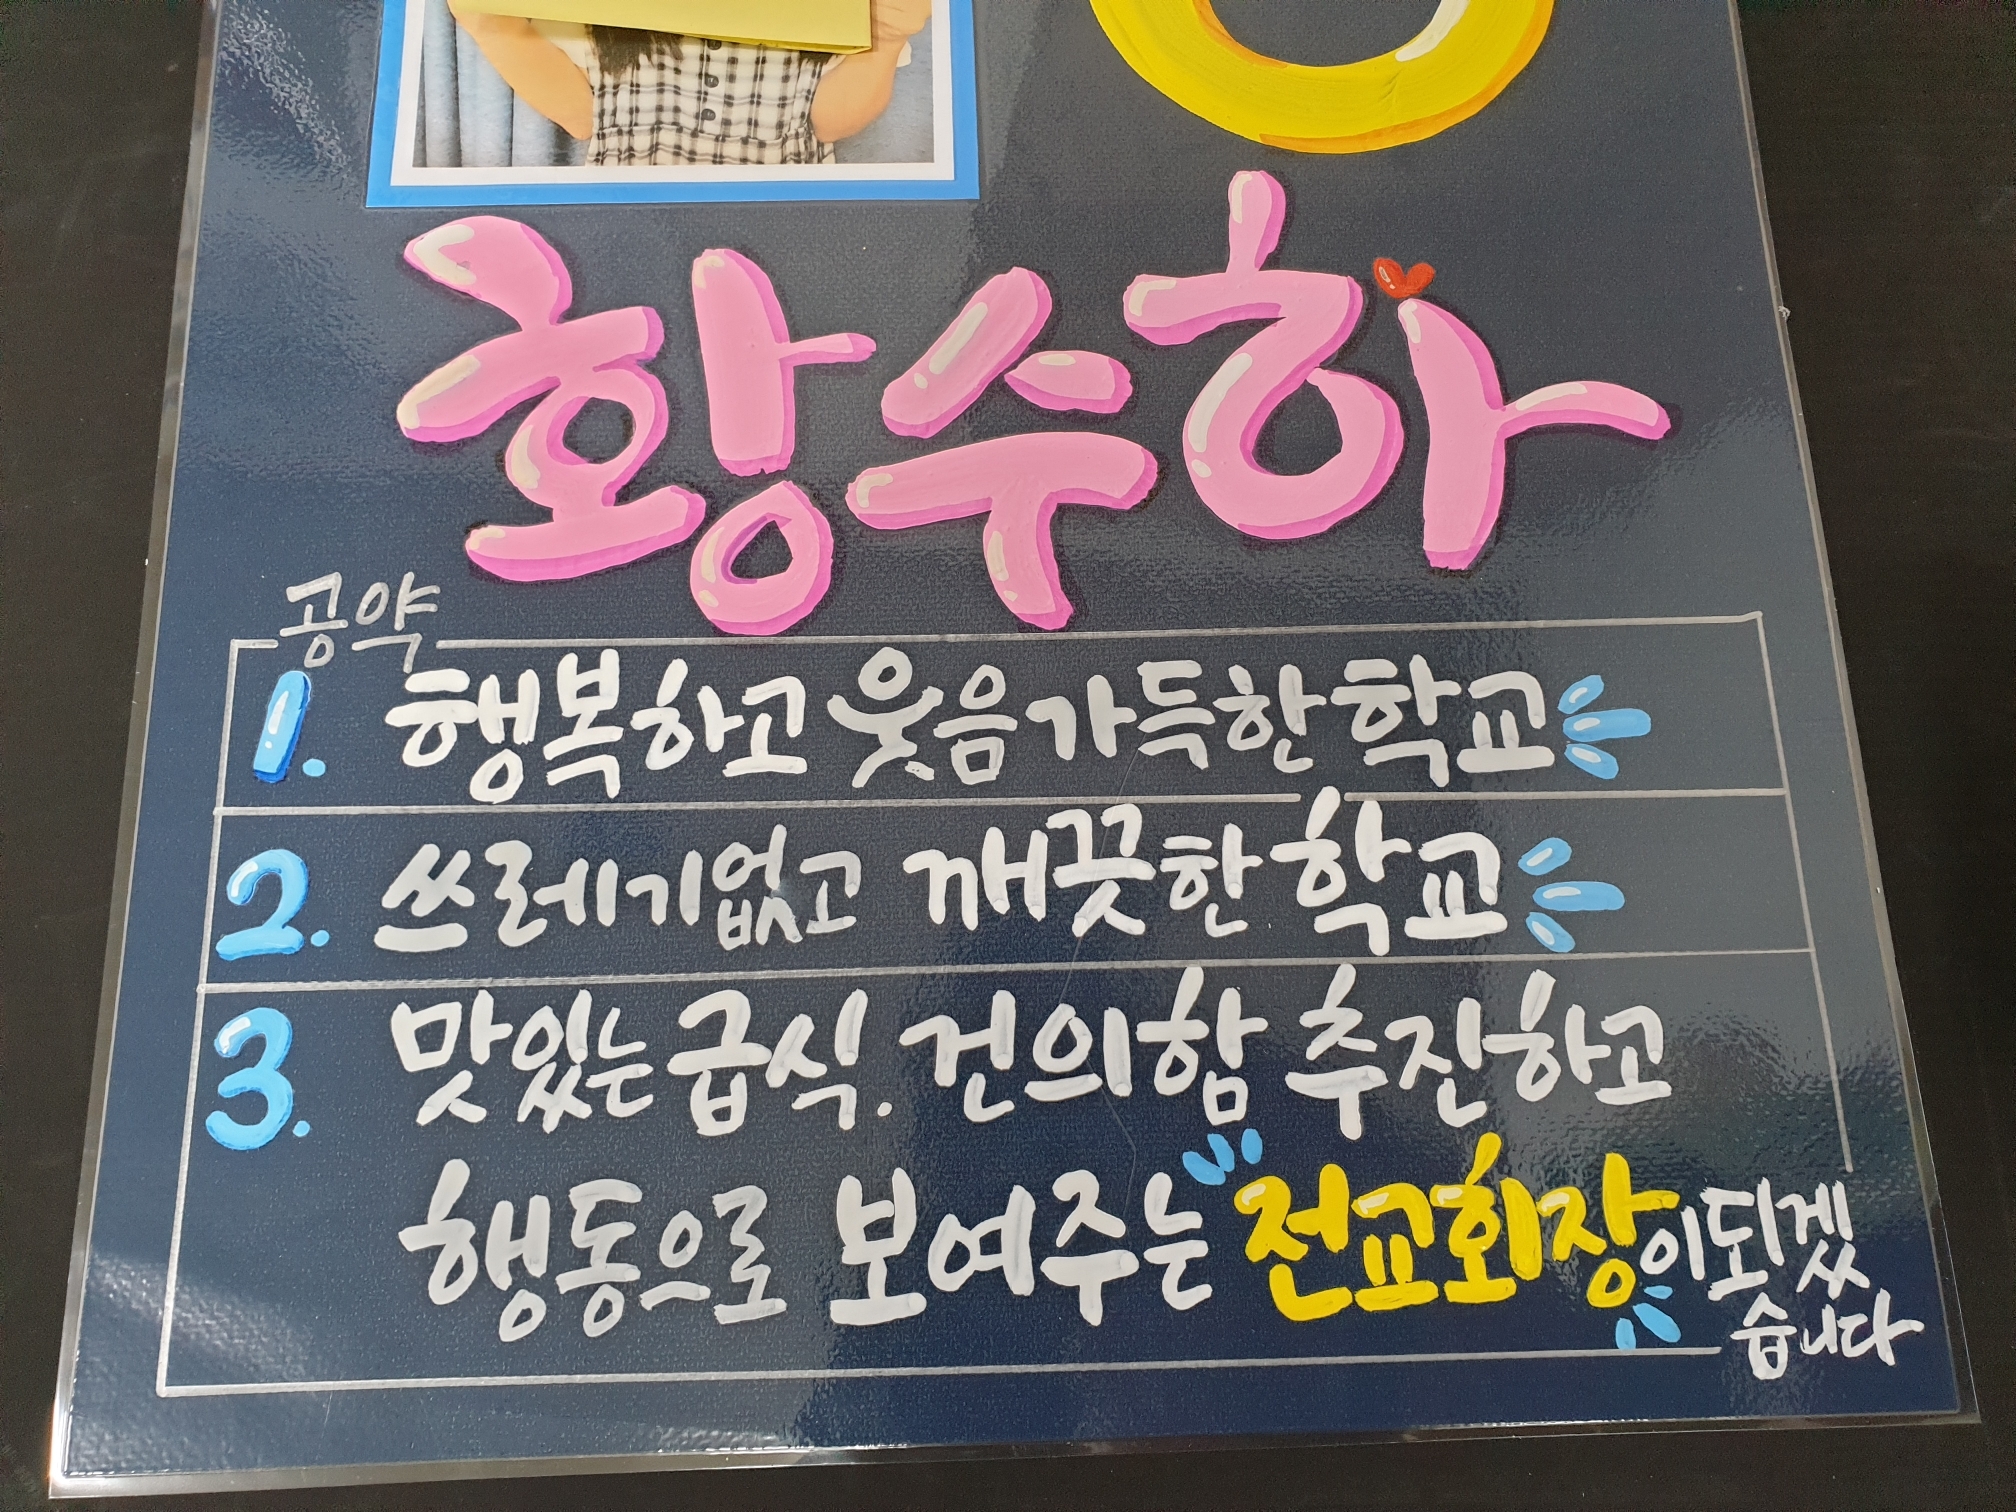 황수하
공약
1. 행복하고 웃음가득한 학교
2. 쓰레기없고 깨끗한 학교
3. 맛있는 급식. 건의함 추진하고
행동으로 보여주는 전교회장이되겠
습니다